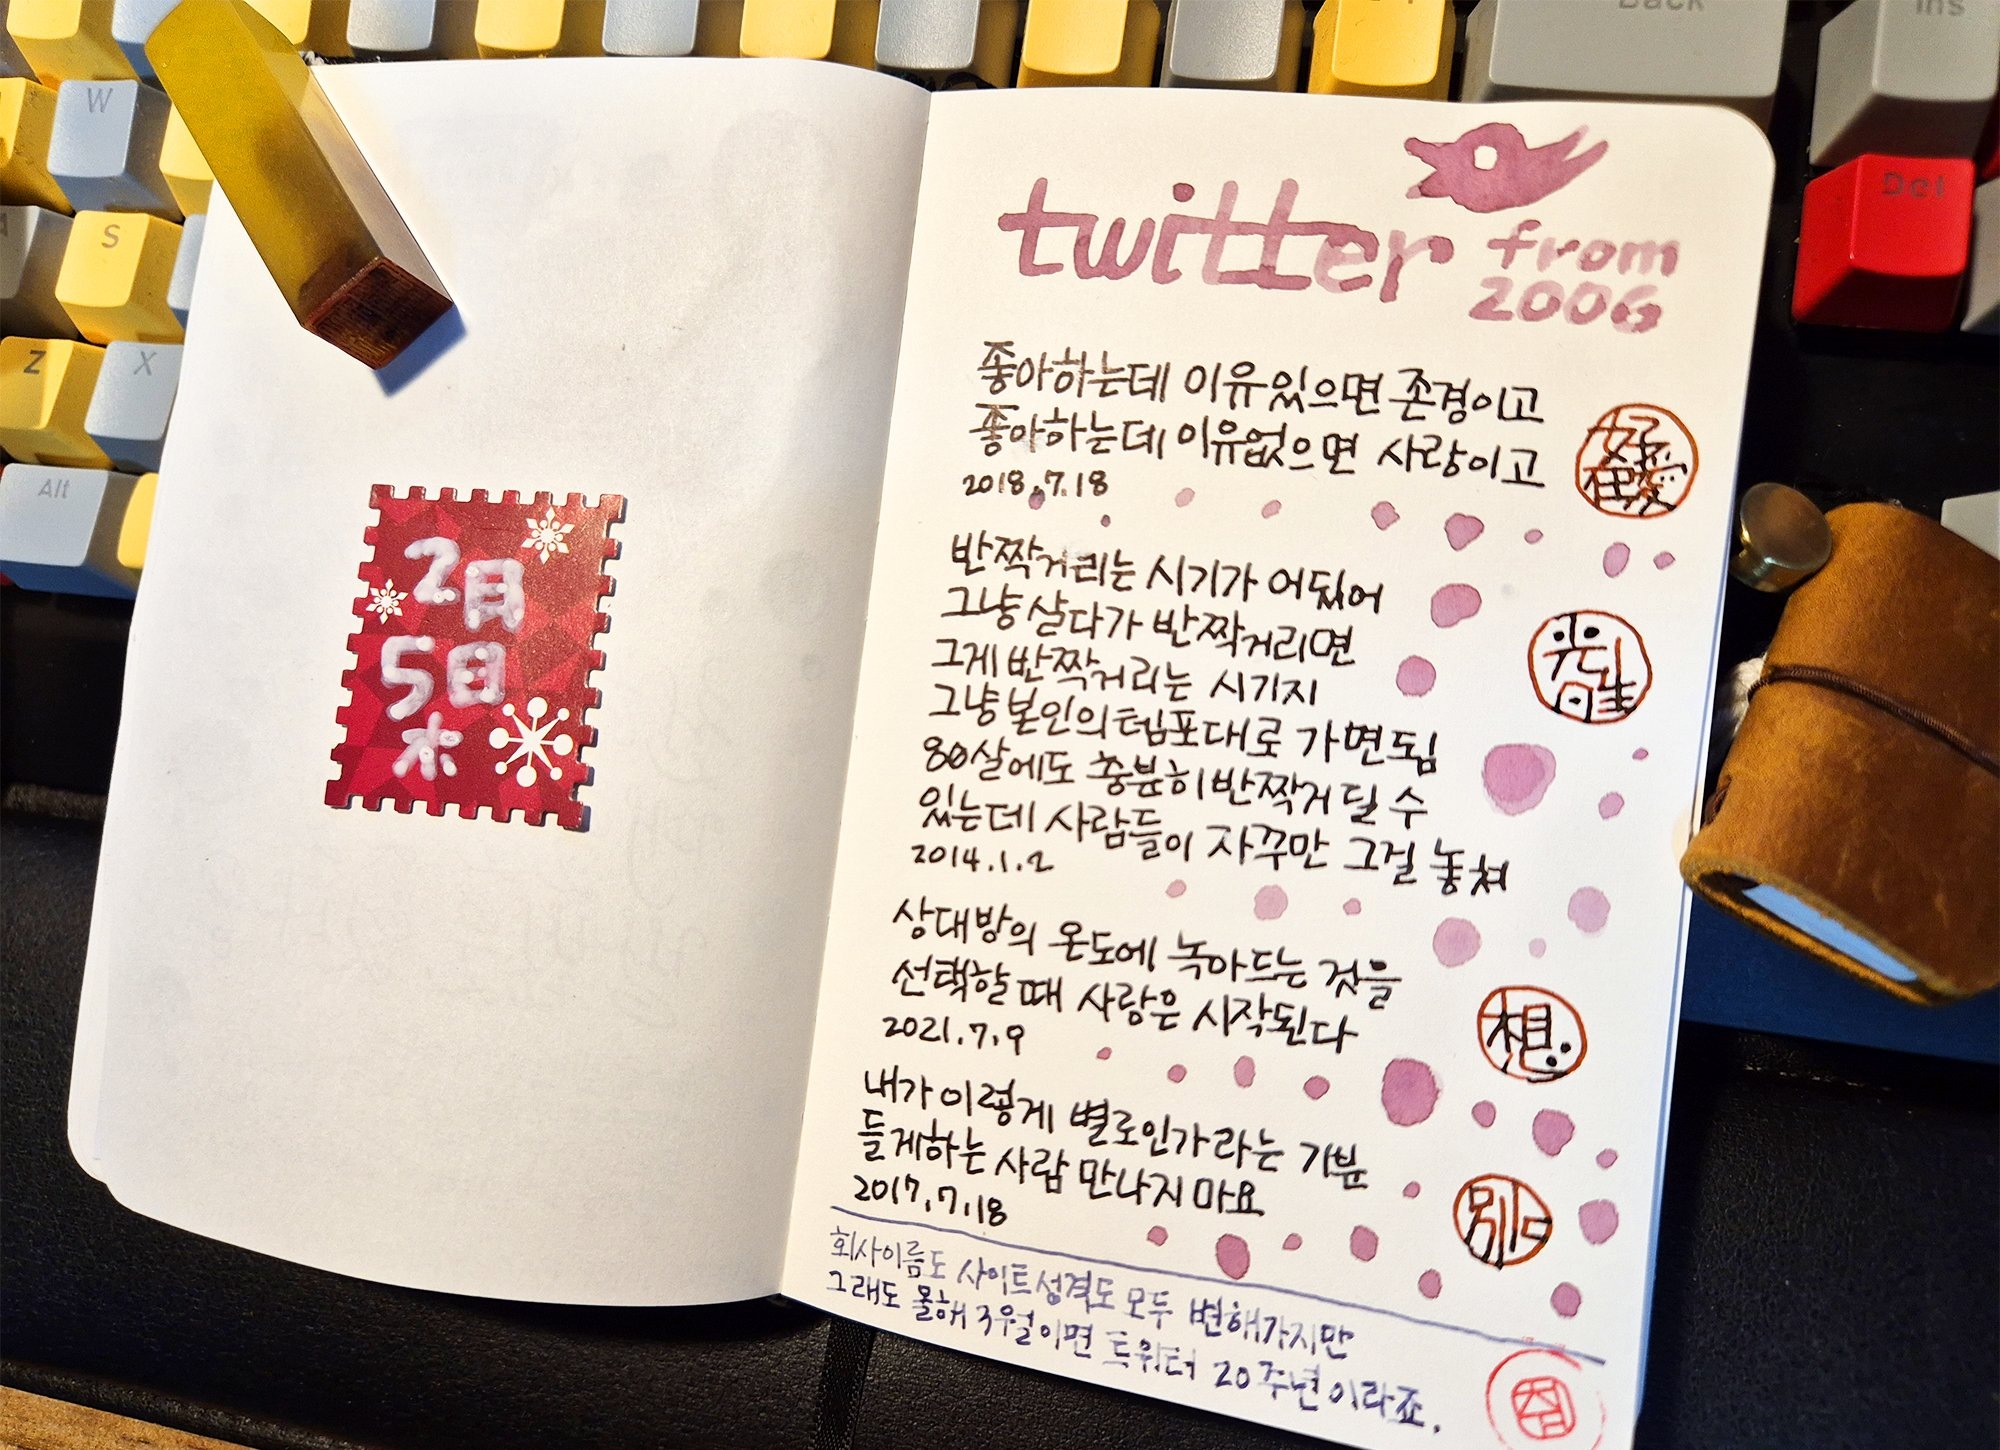 Back
Ins
W
Del
S
Z
X
Alt
2月
5日
木
twitter
from
2006
좋아하는데 이유있으면 존경이고
좋아하는데 이유없으면 사랑이고
2018.7.18
반짝거리는 시기가 어딨어
그냥 살다가 반짝거리면
그게 반짝거리는 시기지
그냥 본인의 템포대로 가면 도ㅣㅁ
80살에도 충분히 반짝거릴 수
있는데 사람들이 자꾸만 그걸 놓쳐
2014.1.2
상대방의 온도에 녹아드는 것을
선택할 때 사랑은 시작된다
2021.7.9
想
내가 이렇게 별로인가라는 기분
들게하는 사람 만나지 마요
2017.7.18
회사이름도 사이트성격도 모두 변해가지만
그래도 올해 3월이면 트위터 20주년이라죠.